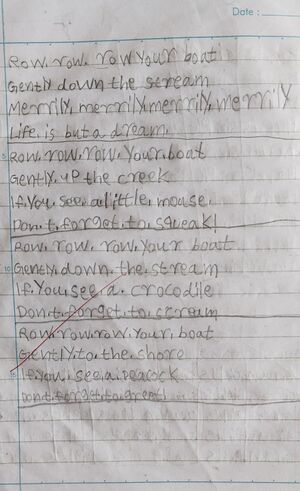 Date :
Row. row. row your boat
Gently down the stream
Merrily, merrily, merrily, merrily
Life. is but a dream.
Row. row. row. Your. boat
Gently. up the creek
If. You. see. a little. mouse.
Don. t. forget. to. squeak!
Row. row. row. your boat
10 Gently. down. the. stream
If. You. see. a. crocodile
Don. t. forget. to scream
Row. row row. Your. boat
Gently. to. the. shore
If. you. see. a. peacock
Don t. forget. to